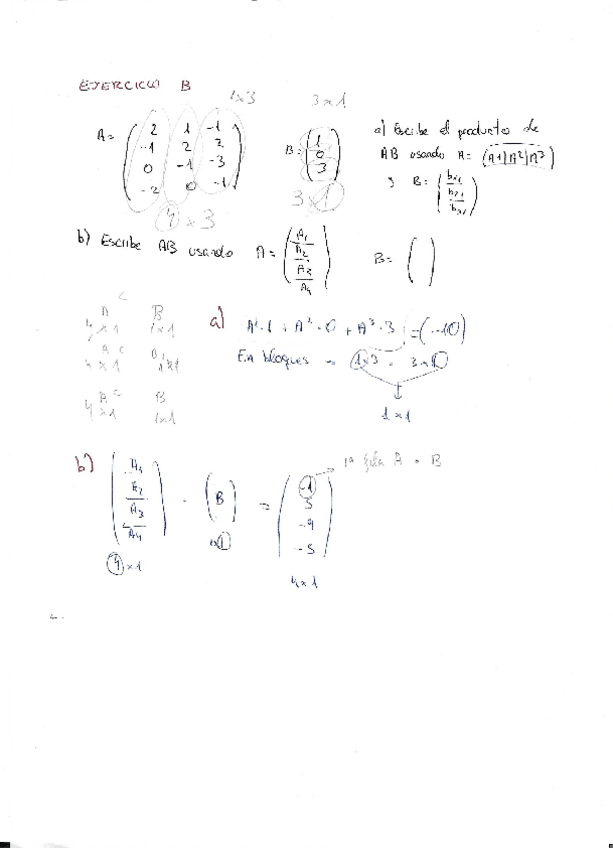 EJERCICIO B
1x3 3x1
A = ( 2 1 -1
-1 2 2
0 -1 -3
-2 0 -1 )
4 x 3
B = ( 1
0
3 )
3x1
a) Escribe el producto de
AB usando A = (A¹|A²|A³)
y B = ( b₁₁
b₂₁
b₃₁ )
b) Escribe AB usando A = ( A₁
A₂
A₃
A₄ ) B = ( )
A C B
4x1 1x1
A C B
4x1 1x1
A C B
4x1 1x1
a) A¹·1 + A²·0 + A³·3 = (-10)
En bloques 1x3 · 3x1
1x1
b) ( A₁
A₂
A₃
A₄ ) · ( B ) = ( -1
5
-9
-5 )
1ª fila A · B
4x1 1x1 4x1